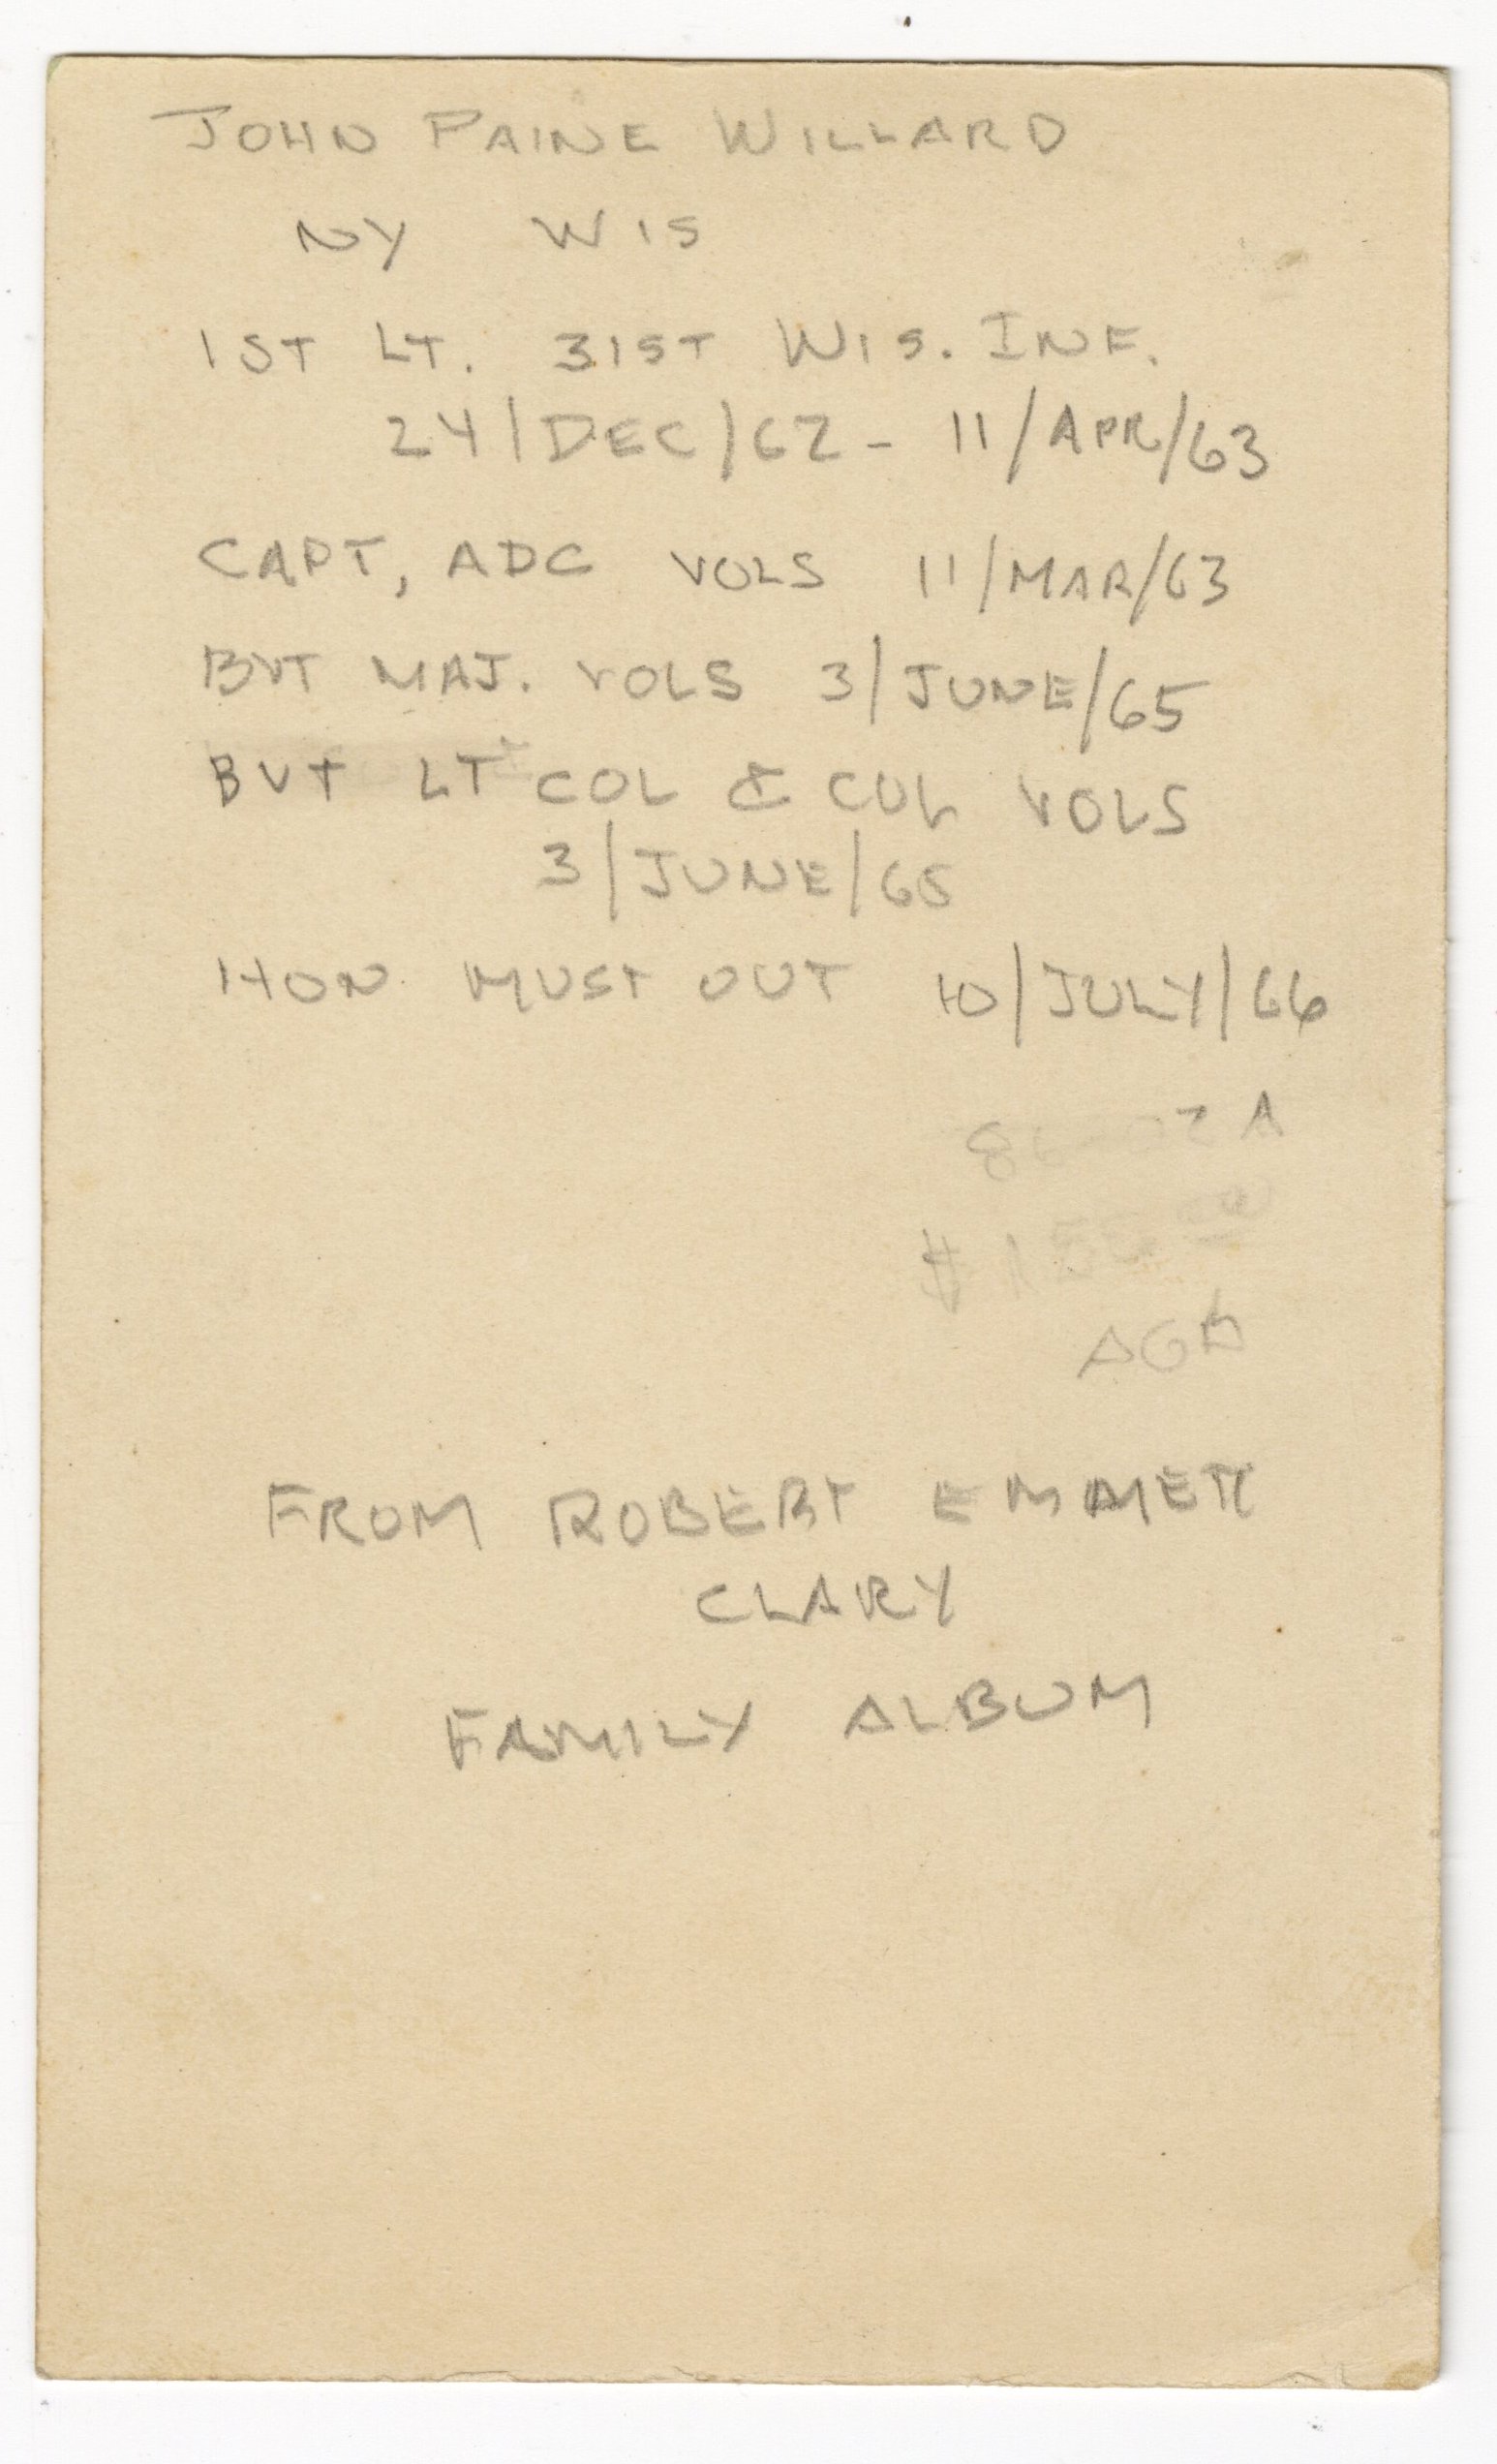 JOHN PAINE WILLARD
NY WIS
1ST LT. 31ST WIS. INF.
24/DEC/62 - 11/APR/63
CAPT, ADC VOLS 11/MAR/63
BVT MAJ. VOLS 3/JUNE/65
BVT LT COL & COL VOLS
3/JUNE/65
HON MUST OUT 10/JULY/66
FROM ROBERT EMMETT
CLARY
FAMILY ALBUM